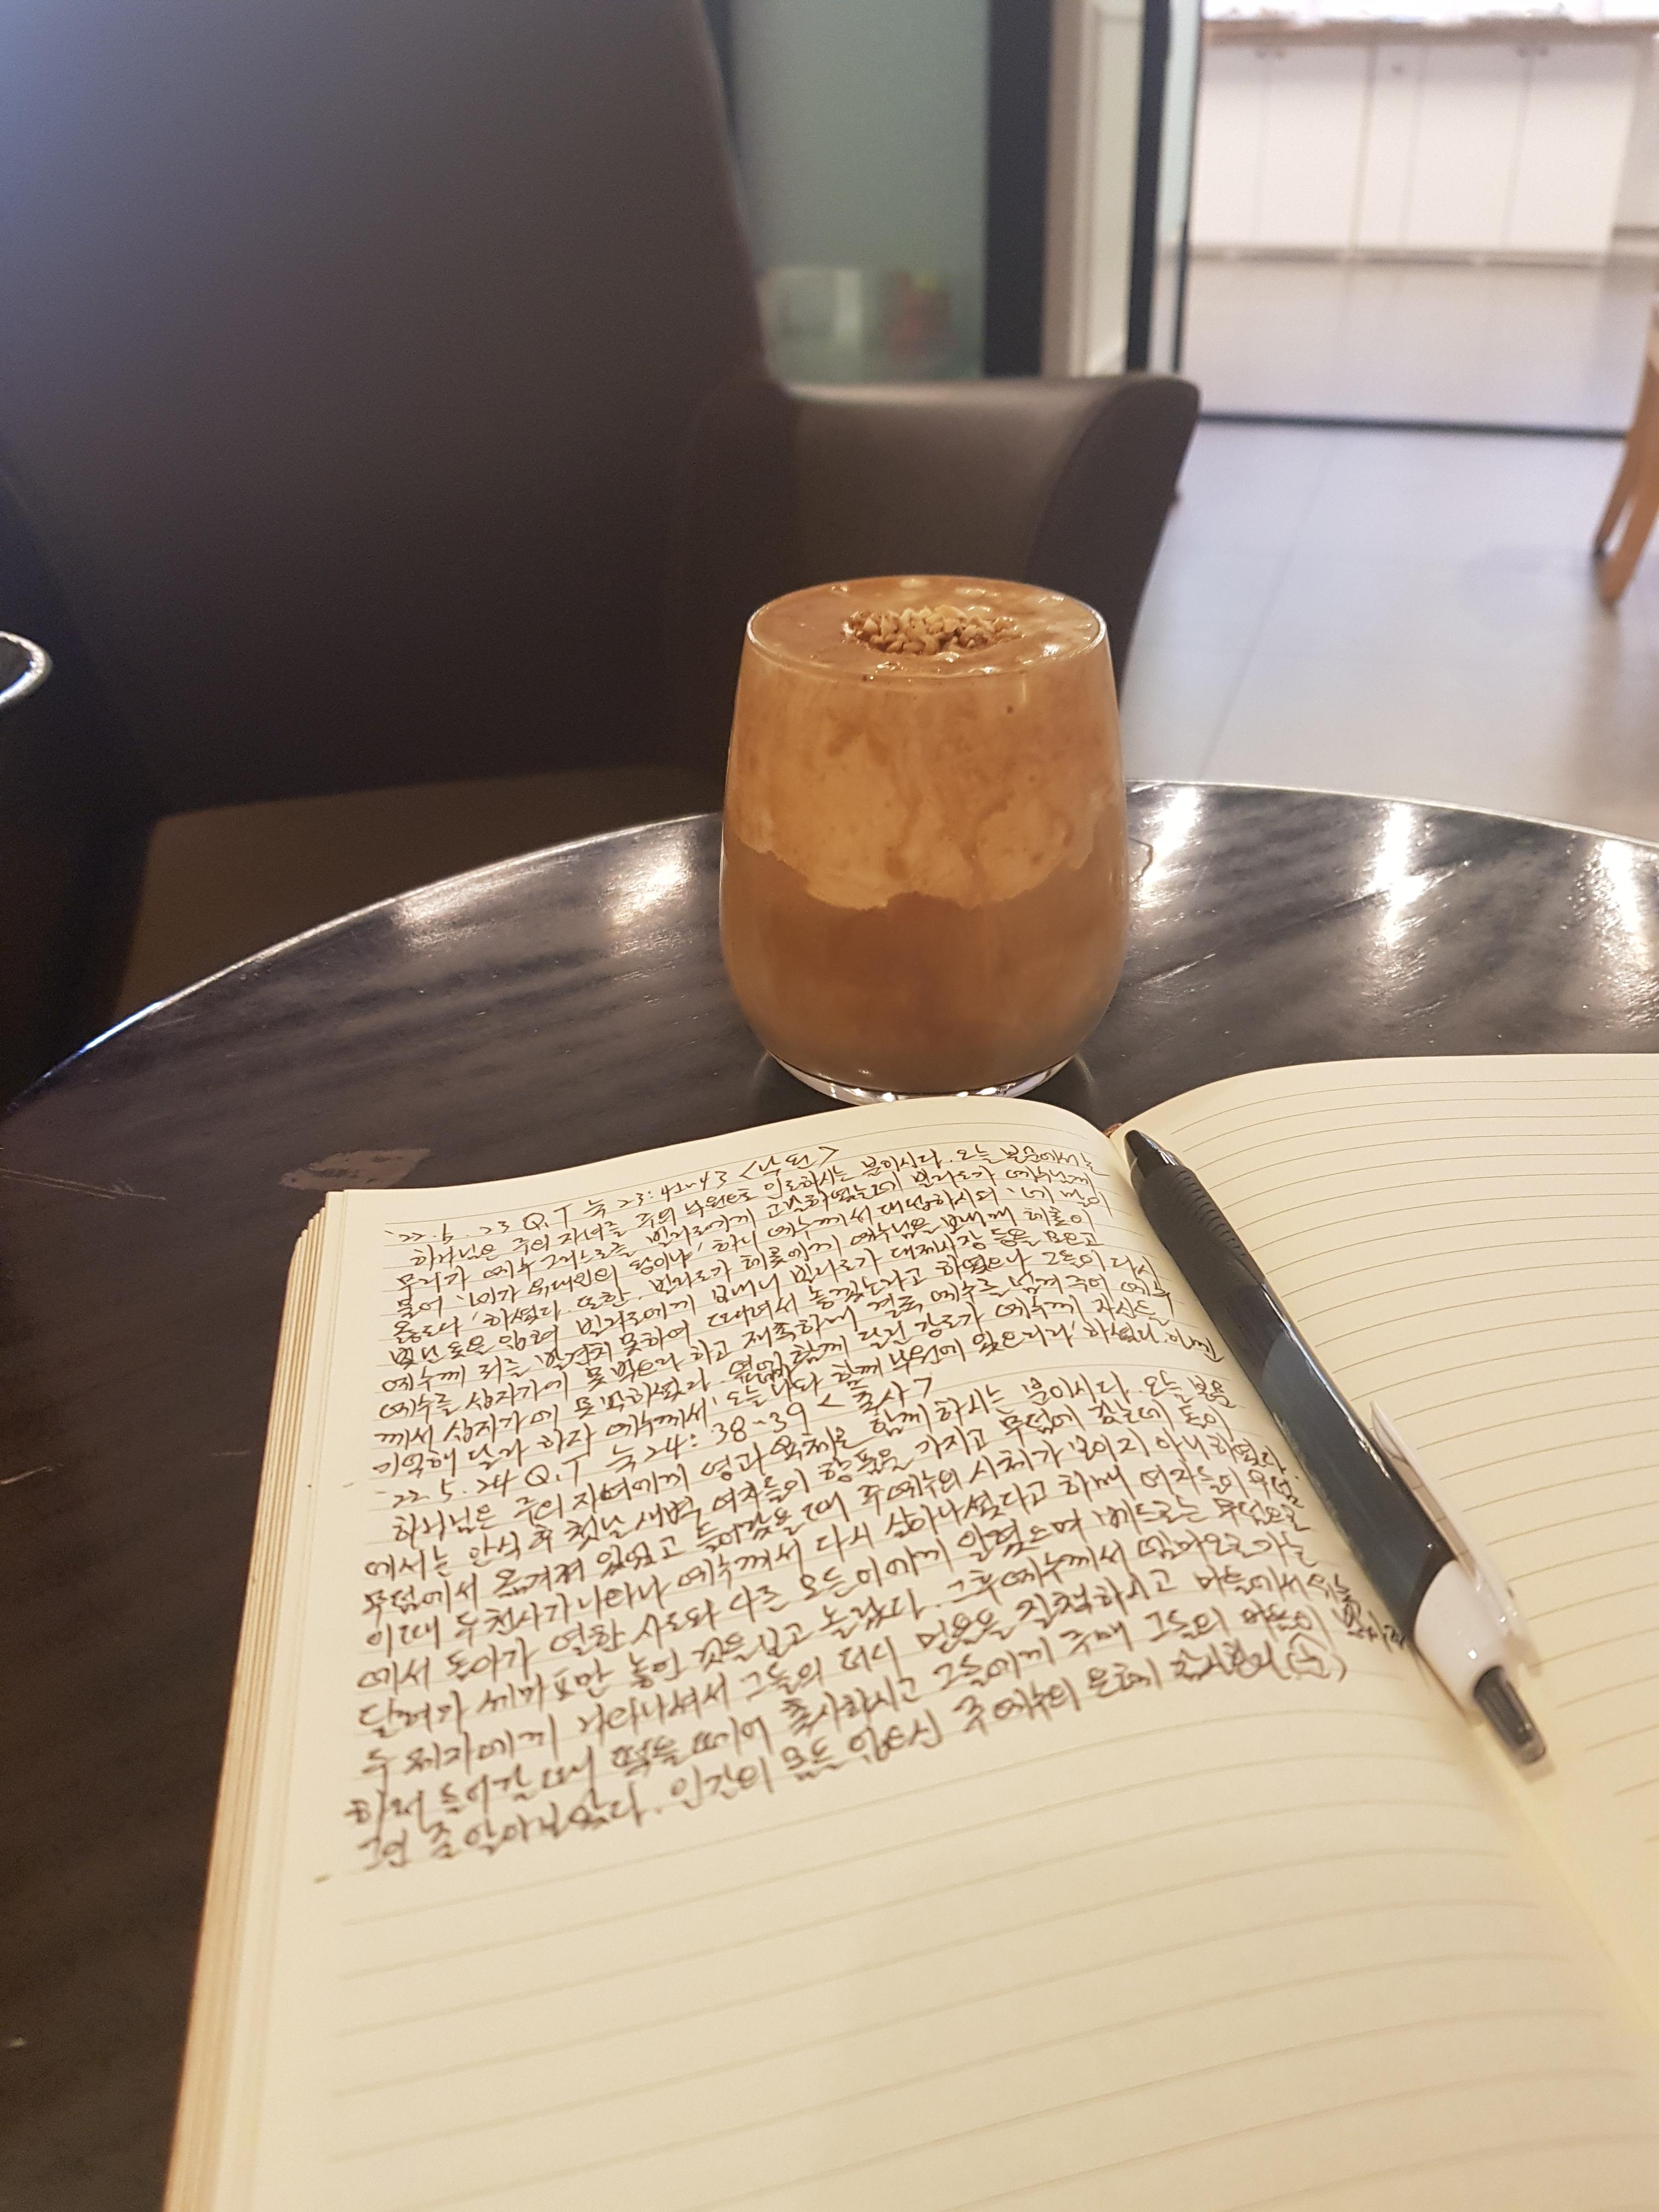 '22. 5. 23 Q.T 눅 23:41~43 <낙원>
하나님은 주의 자녀를 주의 낙원으로 인도하시는 분이시다. 오늘 본문에서는
무리가 예수 그리스도를 빌라도에게 고발하였는데 빌라도가 예수님께
물어 '네가 유대인의 왕이냐' 하니 예수께서 대답하시되 '네 말이
옳도다' 하셨다. 또한, 빌라도가 헤롯에게 예수님을 보내매 헤롯이
빛난 옷을 입혀 빌라도에게 보내니 빌라도가 대제사장 등을 모으고
예수께 죄를 발견치 못하여 때려서 놓겠노라고 하였으나 그들이 다시
예수를 십자가에 못 박으라 하고 재촉하매 결국 예수를 넘겨주어 예수
께서 십자가에 못 박히셨다. 함께 달린 강도가 예수께 자신을
기억해 달라 하자 예수께서 '오늘 나와 함께 낙원에 있으리라' 하셨다.
'22. 5. 24 Q.T 눅 24:38~39 <축사>
하나님은 주의 자녀에게 영과 육체로 함께 하시는 분이시다. 오늘 본문
에서는 안식 후 첫날 새벽 여자들이 향품을 가지고 무덤에 갔는데 돌이
무덤에서 옮겨져 있었고 들어갔을 때 주 예수의 시체가 보이지 아니하였다.
이때 두 천사가 나타나 예수께서 다시 살아나셨다고 하매 여자들이 무덤
에서 돌아가 열한 사도와 다른 모든 이에게 알렸으며 베드로는 무덤으로
달려가 세마포만 놓인 것을 보고 놀랐다. 그 후 예수께서 엠마오로 가는
두 제자에게 나타나셔서 그들의 더디 믿음을 질책하시고 마을에서
하러 들어갈 때 떡을 떼어 축사하시고 그들에게 주매 그들의 눈이
그인 줄 알아보았다. 인간의 몸을 입으신 주 예수의 은혜에